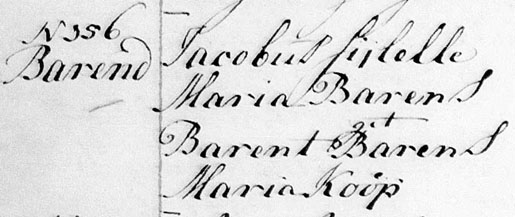 N 356
Barend
Jacobus Sijtelle
Maria Barens
get
Barent Barens
Maria Koop